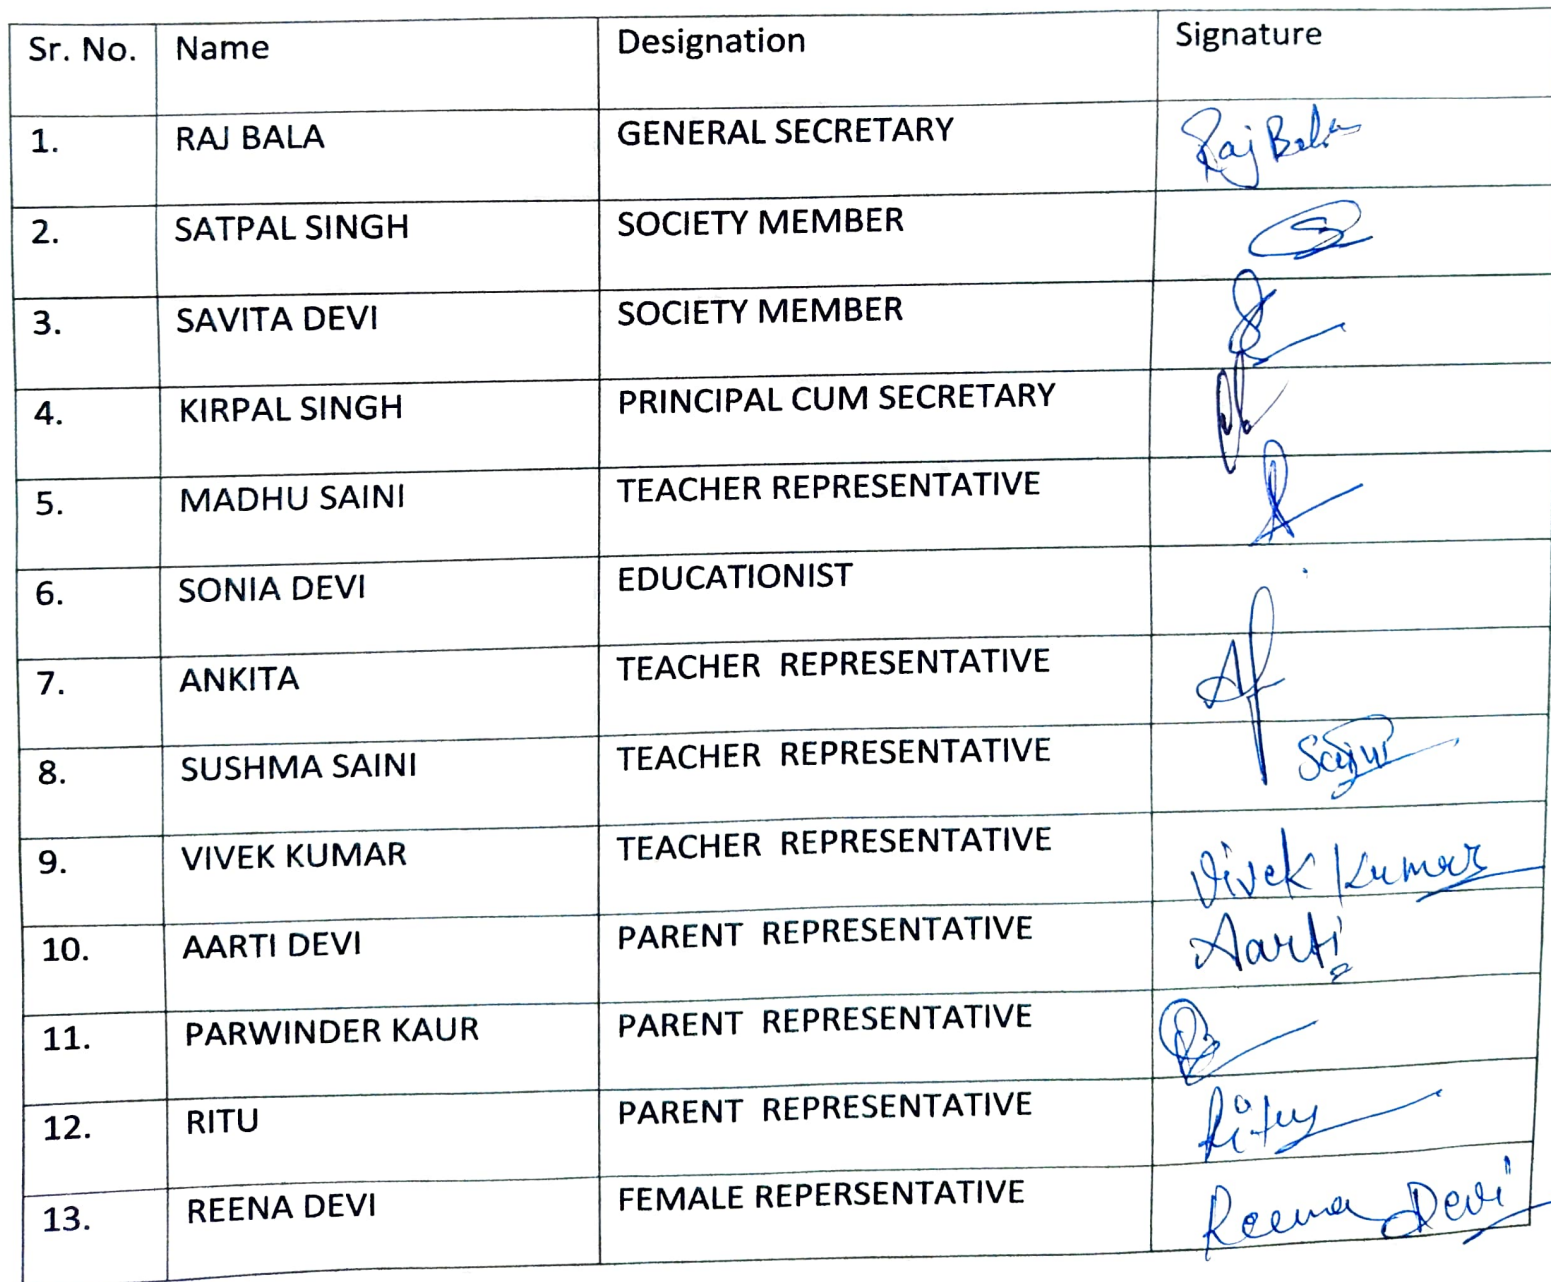 Sr. No. Name Designation Signature
1. RAJ BALA GENERAL SECRETARY Raj Bala
2. SATPAL SINGH SOCIETY MEMBER
3. SAVITA DEVI SOCIETY MEMBER
4. KIRPAL SINGH PRINCIPAL CUM SECRETARY
5. MADHU SAINI TEACHER REPRESENTATIVE
6. SONIA DEVI EDUCATIONIST
7. ANKITA TEACHER REPRESENTATIVE
8. SUSHMA SAINI TEACHER REPRESENTATIVE
9. VIVEK KUMAR TEACHER REPRESENTATIVE Vivek Kumar
10. AARTI DEVI PARENT REPRESENTATIVE Aarti
11. PARWINDER KAUR PARENT REPRESENTATIVE
12. RITU PARENT REPRESENTATIVE Ritu
13. REENA DEVI FEMALE REPERSENTATIVE Reena Devi